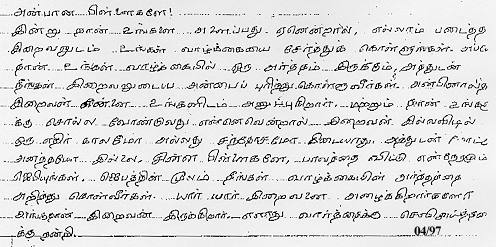 அன்பான பிள்ளைகளே!
இன்று நான் உங்களை அழைப்பது ஏனென்றால், எல்லாம் படைத்த
இறைவனுடம் உங்கள் வாழ்க்கையை சேர்த்துக் கொள்ளுங்கள்.
தான் உங்கள் வாழ்க்கையில் ஒரு அர்த்தம் இருக்கும், அத்துடன்
நீங்கள் இறைவனுடைய அன்பைப் புரிந்துகொள்ளுவீர்கள்.
இறைவன் என்னை உங்களிடம் அனுப்புகிறார். மற்றும் நான் உங்களு
க்கு சொல்ல வேண்டுவது என்னவென்றால் இறைவன் இல்லாவிடில்
ஒரு எதிர் காலமோ அல்லது சந்தோசமோ கிடையாது, அத்துடன்
இல்லை, பிள்ளைகளே, பாவத்தை விட்டு என்றேனும்
ஜெபியுங்கள், ஜெபத்தின் மூலம் நீங்கள் வாழ்க்கையின் அர்த்தத்தை
அறிந்து கொள்வீர்கள். யார் யார் இறைவனை அழைக்கிறார்களோ
அங்குதான் இறைவன் இருக்கிறார். எனது வார்த்தைக்கு
க்கு நன்றி. 04/97